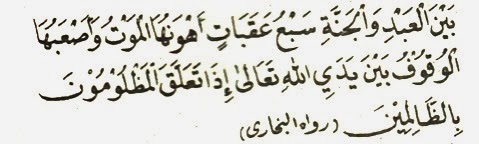 بَيْنَ الْعَبْدِ وَالْجَنَّةِ سَبْعُ عَقَبَاتٍ أَهْوَنُهَا الْمَوْتُ وَأَصْعَبُهَا
الْوُقُوْفُ بَيْنَ يَدَيِ اللهِ تَعَالىٰ إِذَا تَعَلَّقَ الْمَظْلُوْمُوْنَ
بِالظَّالِمِيْنَ (رواه البخارى)